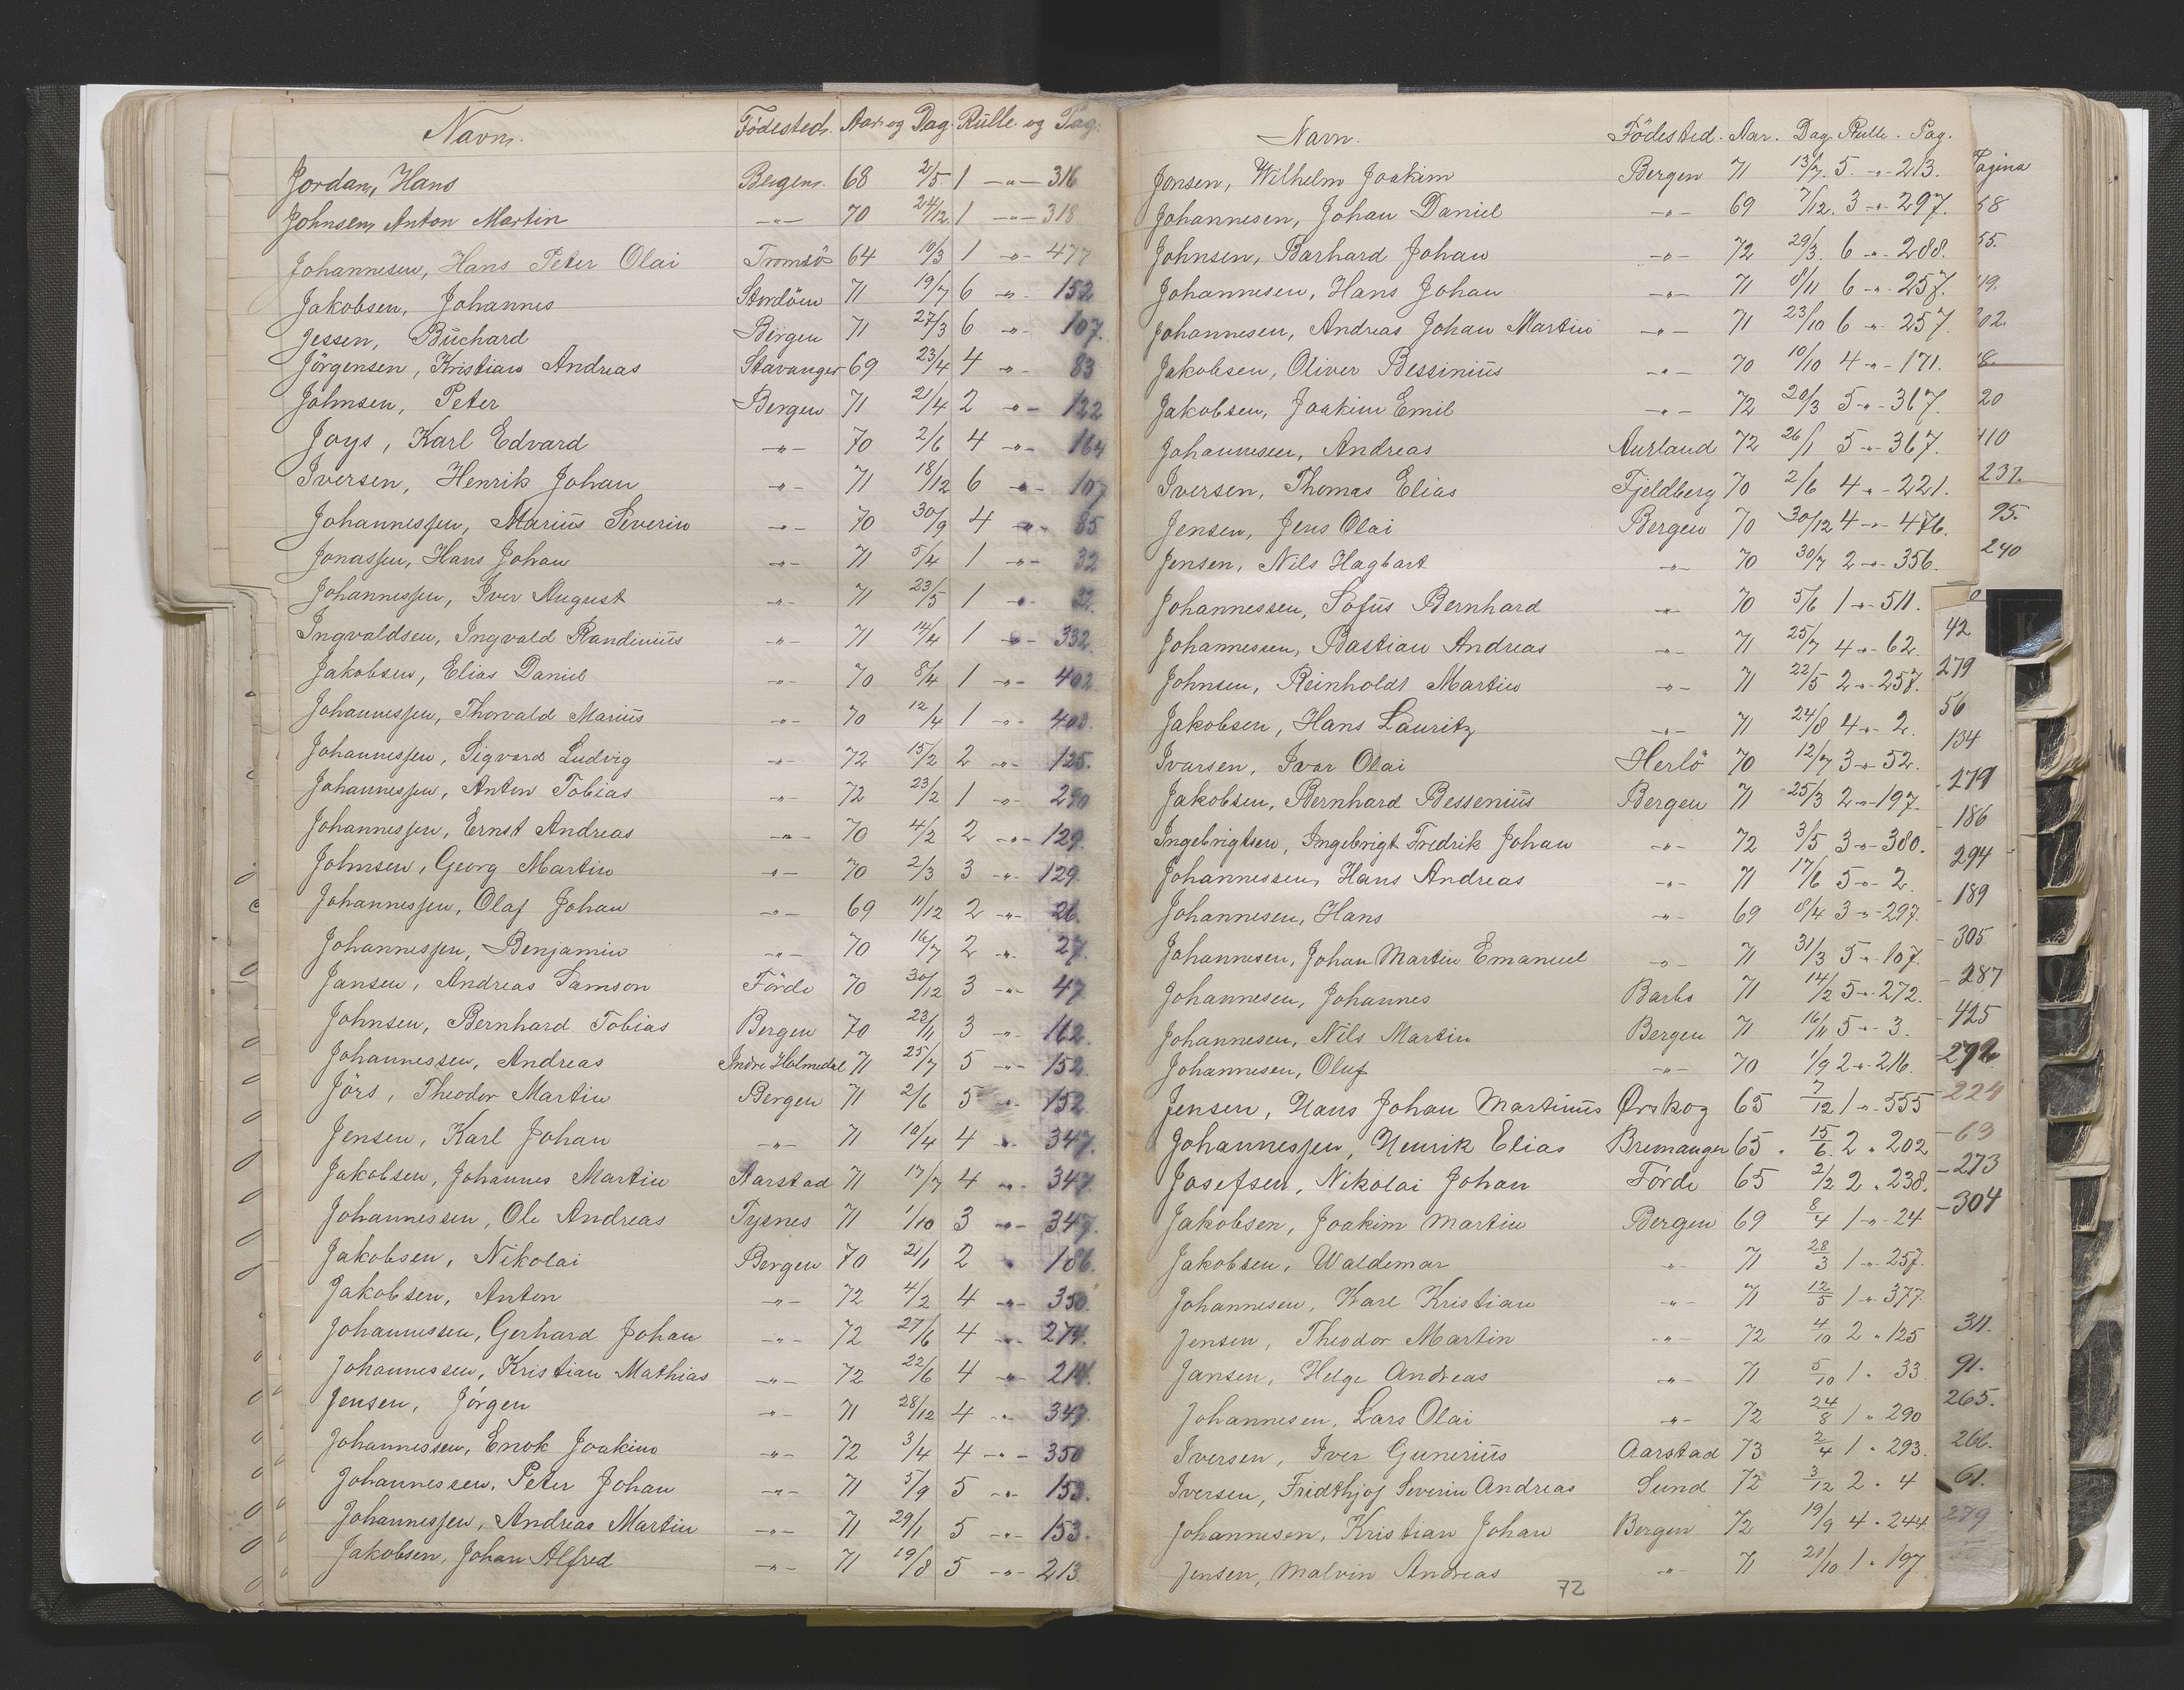 Navn. Födested. Aar og Dag. Rulle og Pag.
Jordan, Hans Bergen. 68 2/5. 1 -"- 316
Johnsen, Anton Martin -"- 70 24/12 1 -"- 318
Johannesen, Hans Peter Olai Tromsö 64 10/3 1 -"- 477
Jakobsen, Johannes Stordöen 71 19/7 6 -"- 152
Jessen, Buchard Bergen 71 27/3 6 -"- 107.
Jörgensen, Kristian Andreas Stavanger 69 23/4 4 -"- 83
Johnsen, Peter Bergen 71 21/4 2 -"- 122
Joys, Karl Edvard -"- 70 2/6 4 -"- 164
Iversen, Henrik Johan -"- 71 18/12 6 -"- 107
Johannessen, Marius Severin -"- 70 30/9 4 -"- 85
Jonassen, Hans Johan -"- 71 5/4 1 -"- 32
Johannessen, Iver August -"- 71 23/5 1 -"- 32.
Ingvaldsen, Ingvald Randinius -"- 71 14/4 1 -"- 332.
Jakobsen, Elias Daniel -"- 70 8/4 1 -"- 402
Johannessen, Thorvald Marius -"- 70 12/4 1 -"- 403.
Johannessen, Sigvard Ludvig -"- 72 15/2 2 -"- 125.
Johannessen, Anton Tobias -"- 72 23/2 1 -"- 290
Johannessen, Ernst Andreas -"- 70 4/2 2 -"- 129.
Johnsen, Georg Martin -"- 70 2/3 3 -"- 129.
Johannessen, Olaf Johan -"- 69 11/12 2 -"- 26.
Johannessen, Benjamin -"- 70 16/7 2 -"- 27.
Jansen, Andreas Samson Förde 70 30/12 3 -"- 47
Johnsen, Bernhard Tobias Bergen 70 23/11 3 -"- 162.
Johannessen, Andreas Indre Holmedal 71 25/7 5 -"- 152.
Jörs, Theodor Martin Bergen 71 2/6 5 -"- 152
Jensen, Karl Johan -"- 71 10/4 4 -"- 347.
Jakobsen, Johannes Martin Aarstad 71 17/7 4 -"- 347.
Johannessen, Ole Andreas Tysnes 71 1/10 3 -"- 347.
Jakobsen, Nikolai Bergen 70 21/1 2 " 186.
Jakobsen, Anton -"- 72 4/2 4 -"- 350.
Johannessen, Gerhard Johan -"- 72 27/6 4 -"- 274.
Johannessen, Kristian Mathias -"- 72 22/6 4 -"- 214.
Jensen, Jörgen -"- 71 28/12 4 -"- 347.
Johannessen, Enok Joakim -"- 72 3/4 4 -"- 350
Johannessen, Peter Johan -"- 71 5/9 5 -"- 153.
Johannessen, Andreas Martin -"- 71 29/1 5 -"- 153.
Jakobsen, Johan Alfred -"- 71 19/8 5 -"- 213.
Navn. Födested. Aar. Dag. Rulle. Pag.
Jonsen, Wilhelm Joakim Bergen 71 13/7. 5. -"- 213.
Johannesen, Johan Daniel -"- 69 7/12. 3 -"- 297.
Johnsen, Barhard Johan -"- 72 29/3. 6 -"- 288.
Johannesen, Hans Johan -"- 71 8/11 6 -"- 257.
Johannesen, Andreas Johan Martin -"- 71 23/10 6 -"- 257.
Jakobsen, Oliver Bessinius -"- 70 10/10 4 -"- 171.
Jakobsen, Joakim Emil -"- 72 20/3 5 -"- 367.
Johannesen, Andreas Aurland 72 26/1 5 -"- 367.
Iversen, Thomas Elias Fjeldberg 70 2/6 4 -"- 221.
Jensen, Jens Olai Bergen 70 30/12 4 -"- 476.
Jensen, Nils Hagbart -"- 70 30/7 2 -"- 356.
Johannessen, Sofus Bernhard -"- 70 5/6 1 -"- 511.
Johannessen, Bastian Andreas -"- 71 25/7 4 -"- 62.
Johnsen, Reinholdt Martin -"- 71 22/5 2 -"- 257.
Jakobsen, Hans Lauritz -"- 71 24/8 4 -"- 2.
Ivarsen, Ivar Olai Herlö 70 12/7 3 -"- 52.
Jakobsen, Bernhard Bessenius Bergen 71 25/3 2 -"- 197.
Ingebrigtsen, Ingebrigt Fredrik Johan -"- 72 3/5 3 -"- 380.
Johannessen, Hans Andreas -"- 71 17/6 5 -"- 2.
Johannesen, Hans -"- 69 8/4 3 -"- 297.
Johannesen, Johan Martin Emanuel -"- 71 31/3 5 -"- 107.
Johannesen, Johannes Barbo 71 14/2 5 -"- 272.
Johannesen, Nils Martin Bergen 71 16/11 5 -"- 3.
Johannesen, Oluf -"- 70 1/9 2 -"- 216.
Jensen, Hans Johan Martinius Ørskog 65 7/12 1 -"- 555
Johannessen, Henrik Elias Bremanger 65 15/6. 2 " 202
Josefsen, Nikolai Johan Förde 65 2/2 2 " 238.
Jakobsen, Joakim Martin Bergen 69 8/4 1 -"- 24
Jakobsen, Waldemar -"- 71 28/3 1 -"- 257.
Johannesen, Karl Kristian -"- 71 12/5 1 " 377.
Jensen, Theodor Martin -"- 72 4/10 2 " 125
Jansen, Helge Andreas -"- 71 5/10 1 " 33
Johannesen, Lars Olai -"- 72 24/8 1 " 290
Iversen, Iver Gunerius Aarstad 73 2/4 1 " 293.
Iversen, Fridthjof Severin Andreas Sund 72 3/12 2 " 4
Johannesen, Kristian Johan Bergen 72 19/9 4 " 244.
Jensen, Malvin Andreas -"- 71 21/10 1 " 197
72
Pagina
58
55.
19.
02.
8.
20
410
237.
95.
240
42
279
56
134
279
186
294
189
305
287
425
272
224
63
273
304
311.
91.
265.
266.
61.
279
K